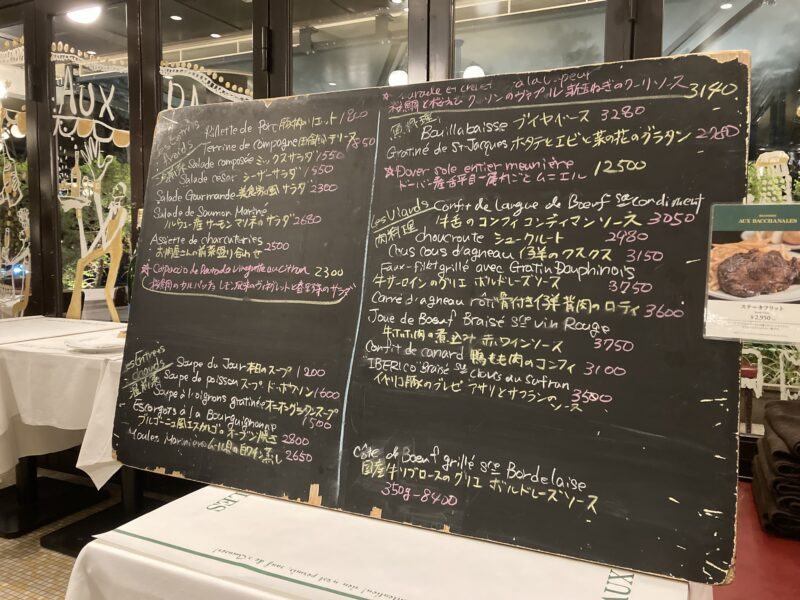 AUX
Rillette de Porc 豚肉リエット 1800
Terrine de campagne 田舎風テリーヌ
Salade composée ミックスサラダ 1550
Salade césar シーザーサラダ 1550
Salade Gourmande 美食家風サラダ 2300
Salade de Saumon Mariné
ノルウェー産サーモンマリネのサラダ 2680
Assiette de charcuteries
お肉屋さんの前菜盛り合わせ 2500
2300
Les Entrées chauds
温前菜
Soupe du Jour 本日のスープ 1200
Soupe de poisson スープ ド ポワソン 1600
Soupe à l'oignons gratinée オニオングラタンスープ 1500
Escargots à la Bourguignonne
ブルゴーニュ風エスカルゴのオーブン焼き 2800
Moules Marinière ムール貝の白ワイン蒸し 2650
桜鯛と
新玉ねぎのクーリソース 3140
魚料理
Bouillabaisse ブイヤベース 3280
Gratiné de St-Jacques ホタテとエビと菜の花のグラタン
Dover sole entier meunière
ドーバー産舌平目一尾丸ごとムニエル 12500
Les Viands
肉料理
Confit de Langue de Bœuf sce condiment
牛舌のコンフィ コンディマンソース 3050
choucroute シュークルート 2980
Cous cous d'agneau 仔羊のクスクス 3150
Faux-filet grillé avec Gratin Dauphinois
牛サーロインのグリエ ボルドレーズソース 3750
Carré d'agneau rôti 骨付き仔羊背肉のロティ 3600
Joue de Bœuf Braisé sce vin Rouge
牛ホホ肉の煮込み 赤ワインソース 3750
Confit de canard 鴨もも肉のコンフィ 3100
IBERICO Braisé sce clovis au Safran
イベリコ豚のブレゼ アサリとサフランのソース 3500
Côte de Bœuf grillé sce Bordelaise
国産牛リブロースのグリエ ボルドレーズソース
350g-8400
BRASSERIE
AUX BACCHANALES
ステーキフリット
¥2,950
AUX